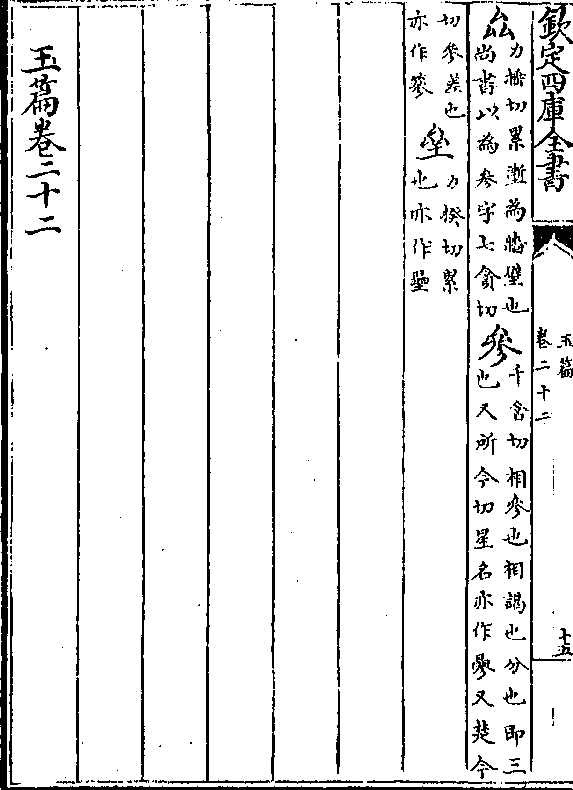 欽定四庫全書
玉篇
卷二十二
十五
厽力捶切累壍為牆壁也尚書以為叅字七貪切參千含切相參也相謁也分也即三也又所今切星名亦作曑又楚今
切參差也亦作篸垒力揆切累也亦作壘
玉篇卷二十二